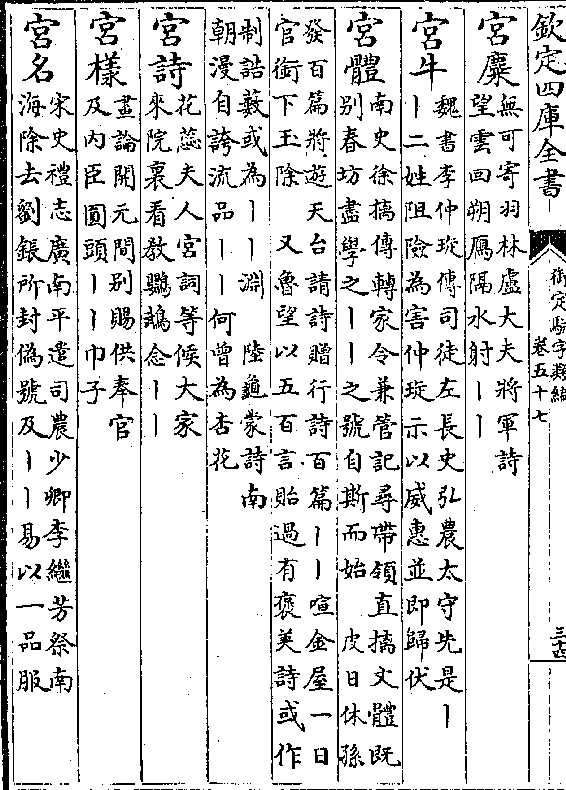 欽定四庫全書
御定駢字類編
卷五十七
三十四
宮麋
無可寄羽林虛大夫將軍詩
望雲回朔鴈隔水射丨丨
宮牛
魏書李仲琁傳司徒左長史弘農太守先是丨
丨二姓阻險為害仲琁示以威惠並即歸伏
宮體
南史徐摛傳轉家令兼管記尋帶領直摛文體既
別春坊盡學之丨丨之號自斯而始　皮日休孫
發百篇將遊天台請詩贈行詩百篇丨丨喧金屋一日
官銜下玉除　又魯望以五百言貽過有褒美詩或作
制誥藪或為丨丨淵　陸龜蒙詩南
朝漫自誇流品丨丨何曾為杏花
宮詩
花蕊夫人宮詞等候大家
來院裏看教鸚鵡念丨丨
宮樣
畫論開元間別賜供奉官
及內臣圓頭丨丨巾子
宮名
宋史禮志廣南平遣司農少卿李繼芳祭南
海除去劉鋹所封偽號及丨丨易以一品服